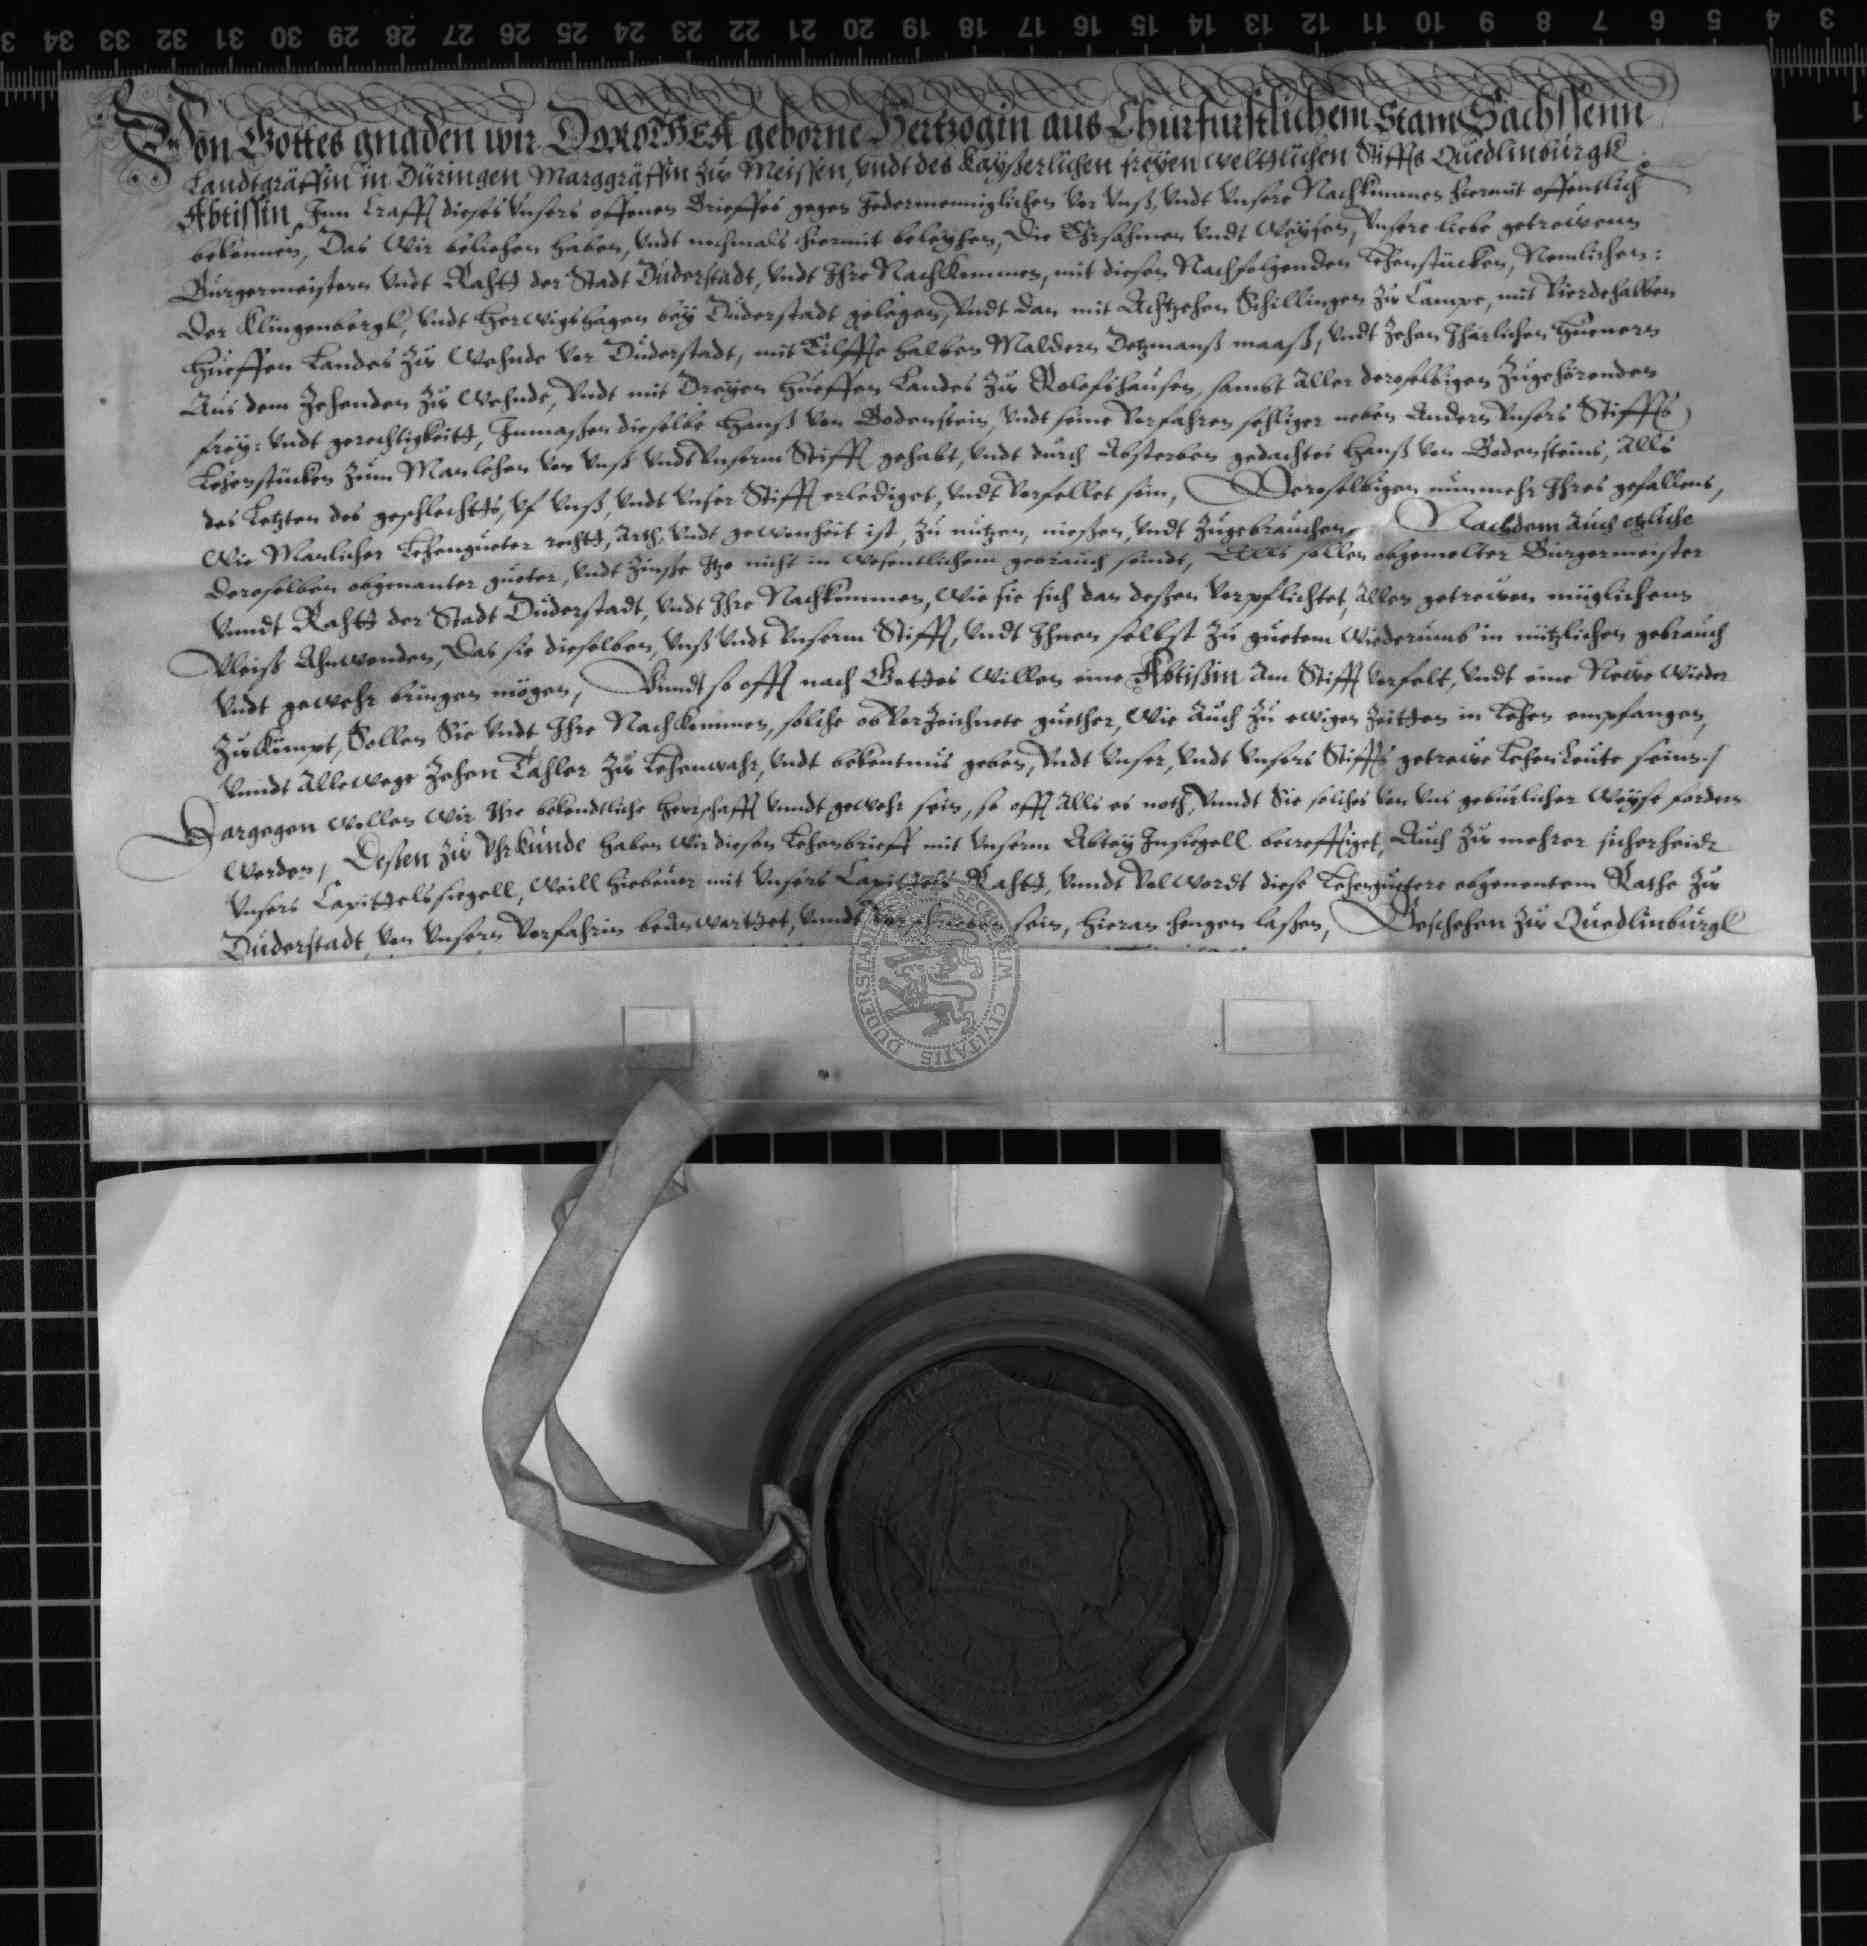 Von Gottes gnaden wir DOROTHEA geborne Hertzogin aus Churfurstlichem Stam Sachssenn
Landtgräffin in Düringen Marggräffin zu Meissen, vndt des kayserlichen freyen weltlichen Stiffts Quedlinburgk
Abtissin, Inn crafft dieses vnsers offenen Brieffes gegen Jedermenniglichen vor vnß, vndt vnsere Nachkummen hiermit offentlich
bekennen, Das Wir beliehen haben, vndt nochmals hiermit beleyhen, Die Ehrsahmen vndt Weysen, vnsere liebe getrewenn
Burgermeistern vndt Rahtt der Stadt Duderstadt, vndt Ihre Nachkommen, mit diesen Nachfolgenden Lehenstücken, Nemlichen:
Der Klingenbergk, vndt Herwigshagen bey Duderstadt gelegen, Vndt dan mit Achtzehen Schillingen zu Campe, mit Vierdehalben
Hueffen Landes zu Wehnde vor Duderstadt, mit Eilffte halben Maldern Detzmanß maaß, vndt zehen Jharlichen Huenern
Aus dem Zehenden zu Wehnde, Vndt mit Dreyen Hueffen Landes zu Rolefshausen, sambt Aller derselbigen Zugehörenden
frey: vndt gerechtigkeitt, Inmaßen dieselbe Hanß von Bodenstein, vndt seine Vorfahren sehliger neben Andern vnsers Stiffts
Lehenstücken zum Manlehen von vnß vndt vnserm Stifft gehabt, vndt durch Absterben gedachtes Hanß von Bodensteins, Alls
des Letzten des geschlechtts, vf vnß, vndt vnser Stifft erlediget, vndt verfellet sein, Deroselbigen nunmehr Ihres gefallens,
Wie Manlicher Lehengueter rechtt, Arth, vndt gewonheit ist, zu nutzen, nießen, vndt zugebrauchen, Nachdem Auch etzliche
deroselben obgenanter gueter, vndt Zinße Itzo nicht in wesentlichem gebrauch seindt, Alls sollen obgemelter Burgermeister
vnndt Rahtt der Stadt Duderstadt, vndt Ihre Nachkommen, Wie sie sich dan deßen verpflichtet, Allen getrewen müglichenn
Vleiß Ahnwenden, Das sie dieselben, vnß vndt vnserm Stifft, vndt Ihnen selbst zu guetem Wiederumb in nützlichen gebrauch
vndt gewehr bringen mögen, Vnndt so offt nach Gottes Willen eine Abtißin Am Stifft verfelt, vndt eine Newe Wieder
zukümpt, Sollen Sie vndt Ihre Nachkommen, solche obverzeichnete guether, Wie Auch zu ewigen Zeitten in Lehen empfangen,
vnndt Allewege Zehen Tahler zu Lehenwahr, vndt bekentnus geben, Vndt vnser, vndt vnsers Stiffts getrewe Lehenleute sein./
Dargegen wollen Wir Ihr bekendtliche herrschafft vnndt gewehr sein, so offt Alls es noth, Vnndt Sie solches von vns geburlicher Weyse fordern
werden, Deßen zu Vhrkunde haben Wir diesen Lehenbrieff mit vnserm Abtey Insiegell becrefftiget, Auch zu mehrer sicherheidt
vnsers Capittelssiegell, Weill hiebeuor mit vnsers Capittels Rahtt, vnndt Volwordt diese Lehenguetere obgenentem Rathe zu
Duderstadt, von vnsern Vorfahrin beanwarttet, vnndt verschrieben sein, hieran hengen laßen, Geschehen zu Quedlinburgk
DUDERSTADT CIVITATIS
3 4 5 6 7 8 9 10 11 12 13 14 15 16 17 18 19 20 21 22 23 24 25 26 27 28 29 30 31 32 33 34 3